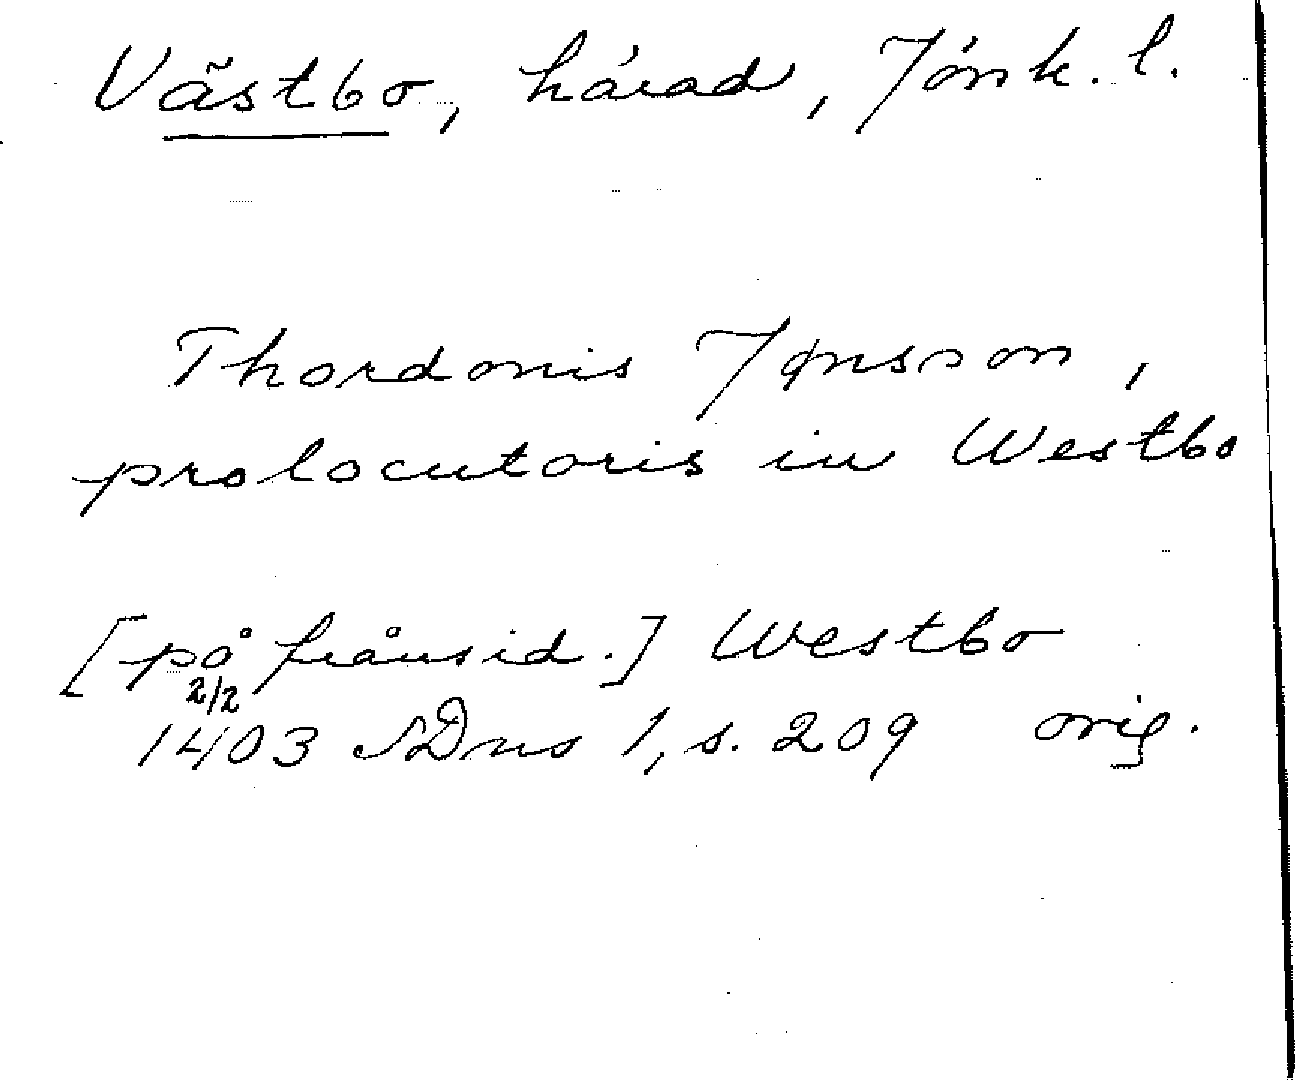 Västbo, härad, Jönk. l.
Thordonis Jønsson,
prolocutoris in Westbo
[på frånsid.] Westbo
2/2
1403 SDns 1, s. 209 orig.